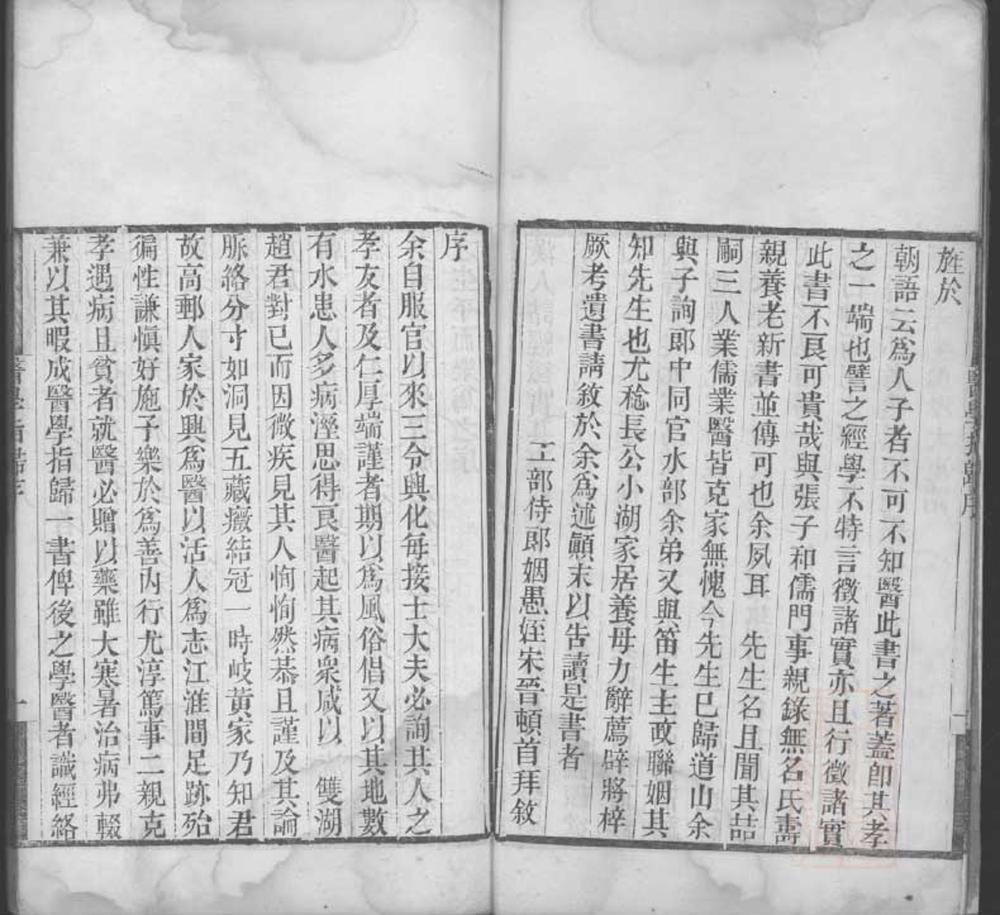 旌於
朝語云爲人子者不可不知醫此書之著蓋卽其孝
之一端也譬之經學不特言徵諸實亦且行徵諸實
此書不良可貴哉與張子和儒門事親錄無名氏壽
親養老新書並傳可也余夙耳 先生名且聞其喆
嗣三人業儒業醫皆克家無愧今先生已歸道山余
與子詢郎中同官水部余弟又與笛生主政聯姻其
知先生也尤稔長公小湖家居養母力辭薦辟將梓
厥考遺書請敘於余爲述顚末以告讀是書者
工部侍郎姻愚姪宋晉頓首拜敘
醫學指歸序
一
序
余自服官以來三令興化每接士大夫必詢其人之
孝友者及仁厚端謹者期以爲風俗倡又以其地數
有水患人多病溼思得良醫起其病衆咸以 雙湖
趙君對已而因微疾見其人恂恂然恭且謹及其論
脈絡分寸如洞見五藏癥結冠一時岐黃家乃知君
故高郵人家於興爲醫以活人爲志江淮間足跡殆
徧性謙愼好施予樂於爲善內行尤淳篤事二親克
孝遇病且貧者就醫必贈以藥雖大寒暑治病弗輟
兼以其暇成醫學指歸一書俾後之學醫者識經絡
醫學指歸序
一